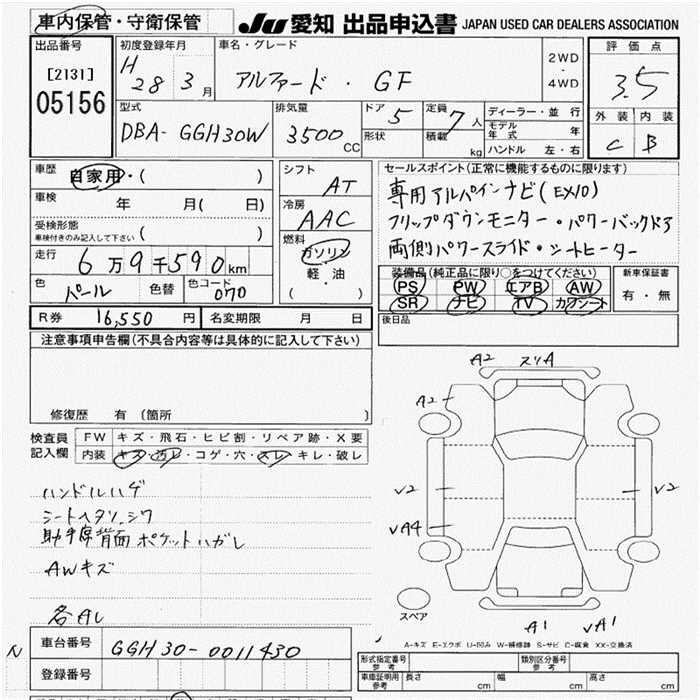 車内保管・守衛保管
JU 愛知 出品申込書 JAPAN USED CAR DEALERS ASSOCIATION
出品番号
[2131]
05156
初度登録年月
H 28 3月
車名・グレード
アルファード・GF
2WD
・
4WD
評価点
3.5
型式
DBA-GGH30W
排気量
3500 CC
ドア 5
形状
定員 7 人
積載 kg
ディーラー・並行
モデル年式 年
ハンドル 左・右
外装 内装
C B
車歴
自家用・( )
車検
年 月( 日)
受検形態
車検付きのみ記入して下さい ( )
走行
6万9千590km
色 パール 色替 色コード 070
シフト
AT
冷房
AAC
燃料
ガソリン
軽・油
( )
セールスポイント(正常に機能するものに限ります)
専用アルパインナビ(EX10)
フリップダウンモニター・パワーバックドア
両側パワースライド・シートヒーター
装備品(純正品に限り○をつけてください)
PS PW エアB AW
SR ナビ TV カワシート
新車保証書
有・無
R券 16,550円 名変期限 月 日
後日品
注意事項申告欄(不具合内容等は具体的に記入して下さい)
修復歴 有(箇所 )
検査員記入欄
FW キズ・飛石・ヒビ割・リペア跡・X要
内装 キズ・汚レ・コゲ・穴・スレ・キレ・破レ
ハンドルハゲ
シートヘタリ、シワ
助手席背面ポケットハガレ
AWキズ
各AU
A2 スリA
A2
V2 V2
VA4
スペア
A1 VA1
A-キズ E-エクボ U-凹み W-補修跡 S-サビ C-腐食 XX-交換済
車台番号 GGH30-0011430
登録番号
形式指定番号
参考
類別区分番号
参考
車庫証明用
参考
長さ cm 幅 cm 高さ cm